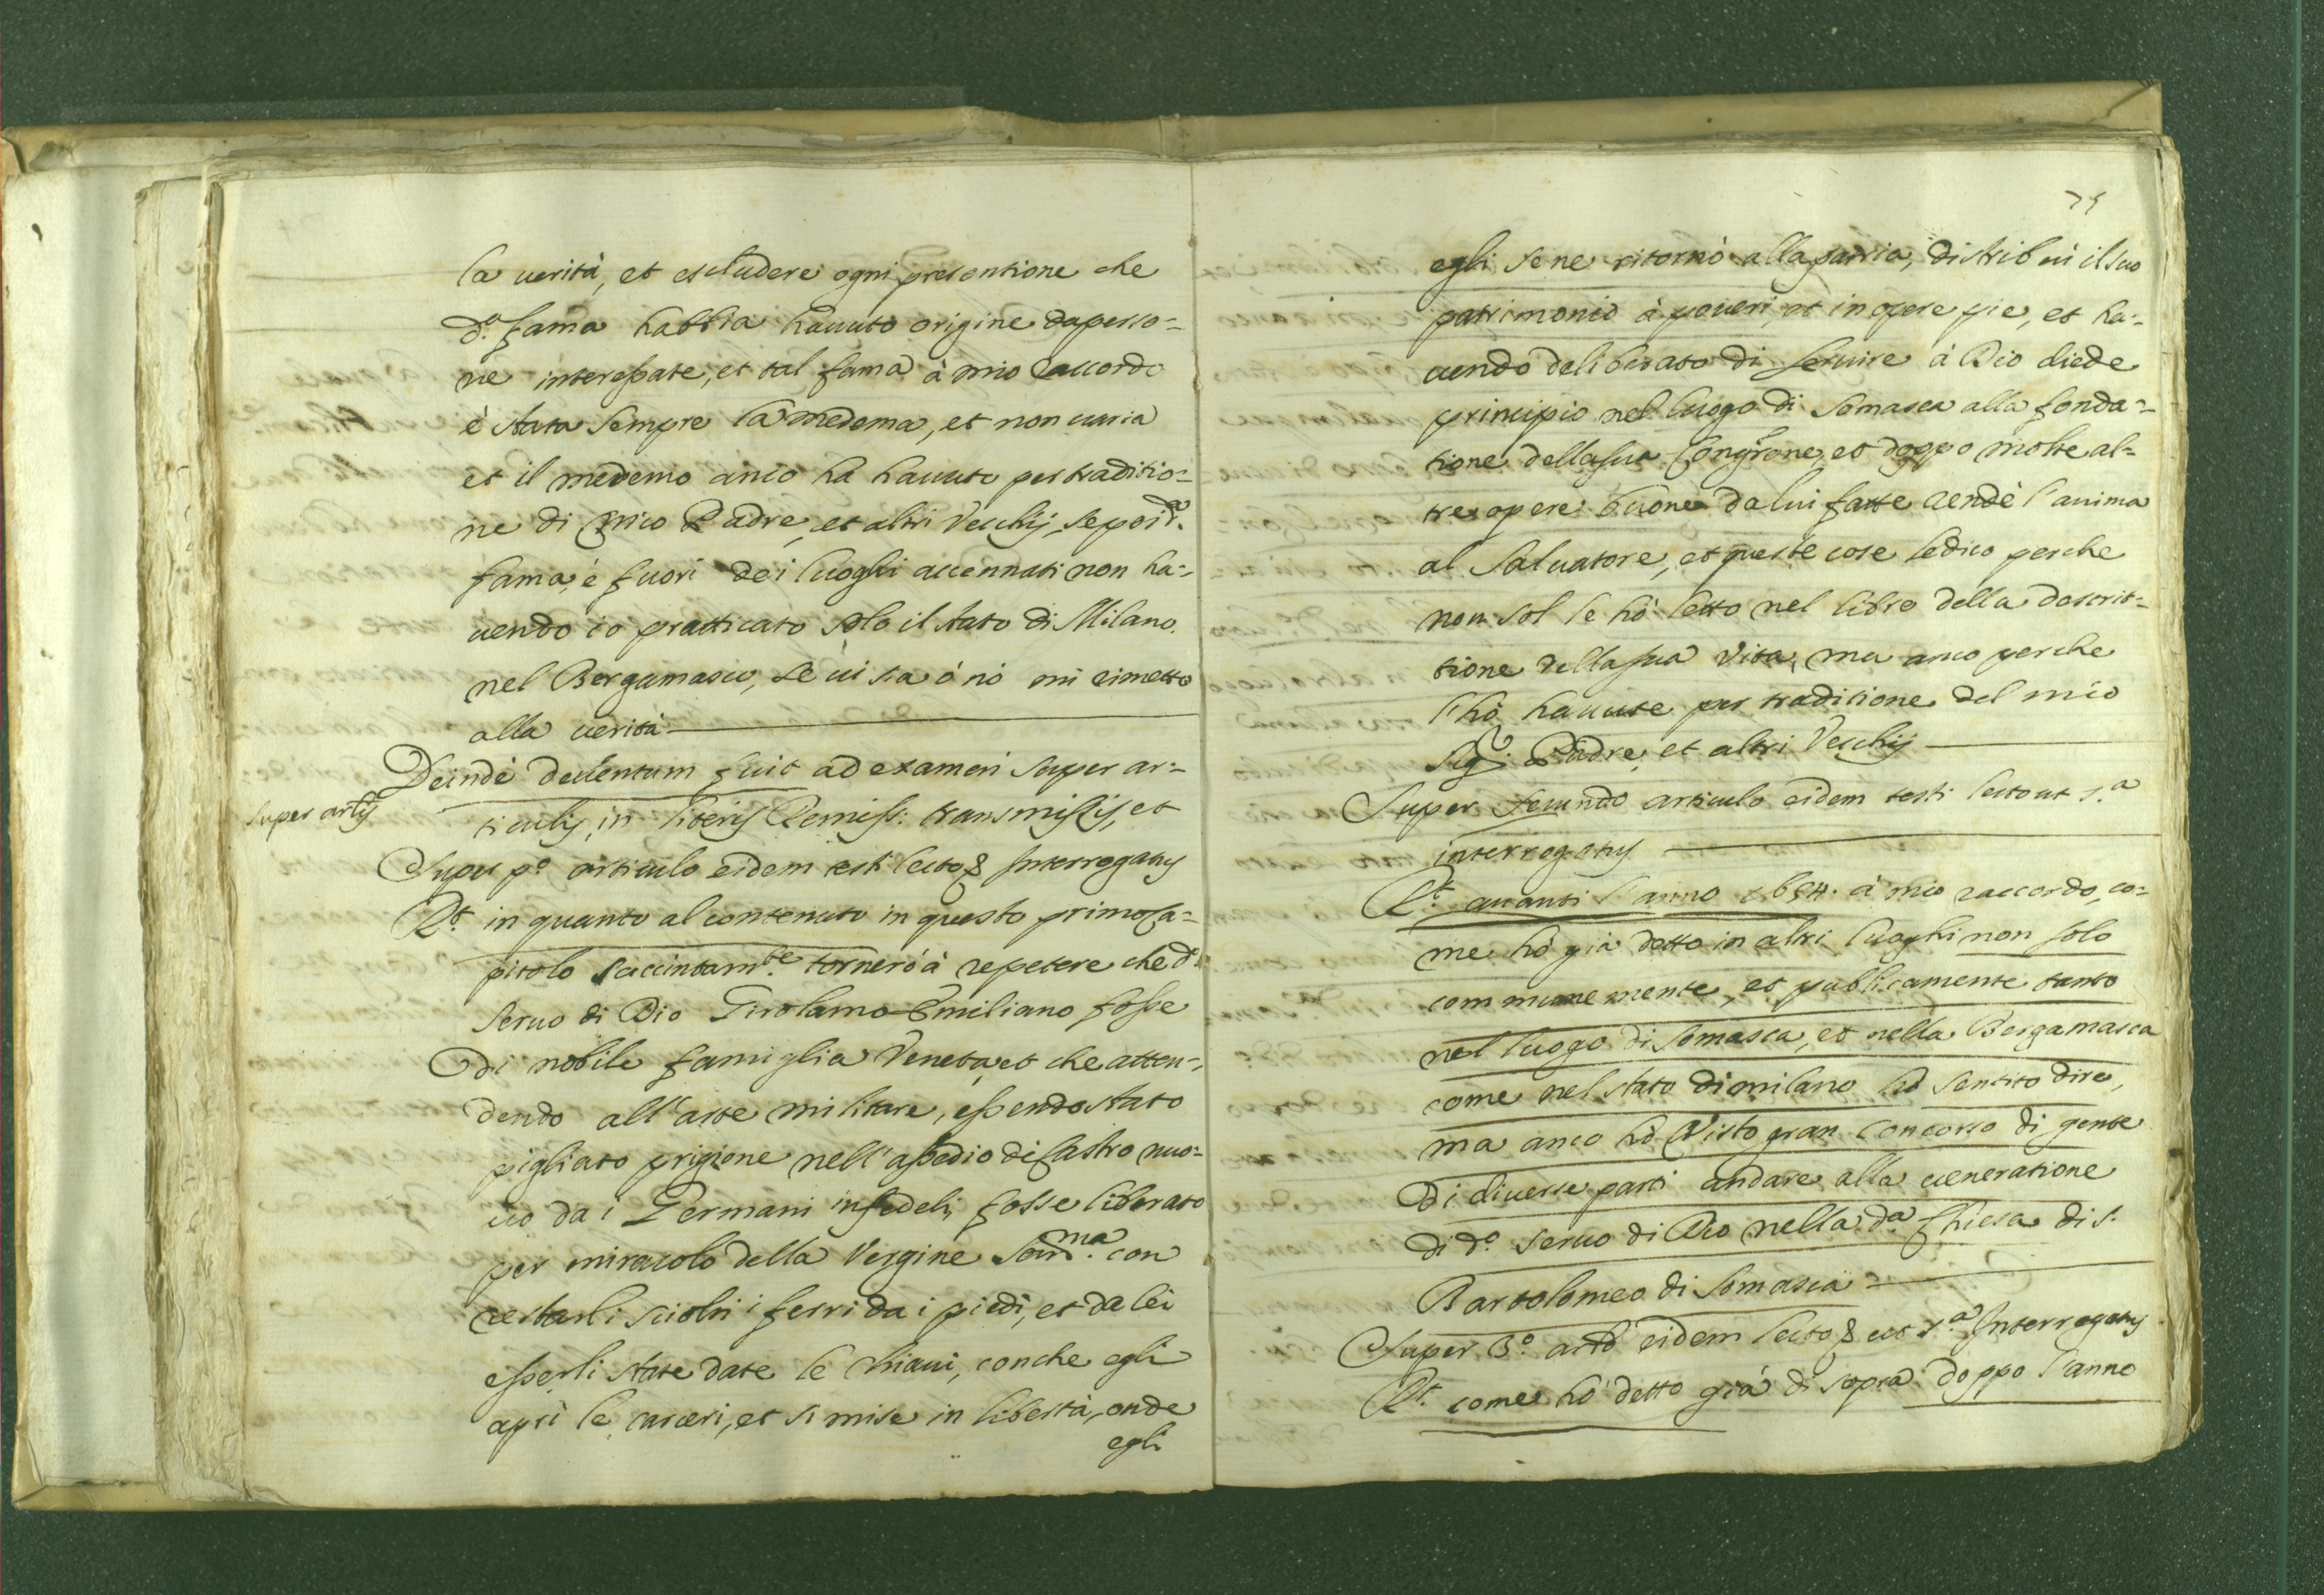 la uerità, et escludere ogni presontione che
d.ª fama habbia hauuto origine da perso=
ne interessate, et tal fama à mio raccordo
è stata sempre la medema, et non uaria
et il medemo anco ha hauuto per traditio=
ne di mio Padre, et altri Vecchij, se poi d.ª
fama, è fuori dei luoghi accennati non ha=
uendo io pratticato solo il stato di Milano.
nel Bergamasco, se ui sia ò nò mi rimetto
alla uerità
Deindè deuentum fuit ad examen super ar=
super artis
ticulis in literis Remiss: transmissis, et
Super p.º articulo eidem testi lecto & Interrogatus
R.t in quanto al contenuto in questo primo Ca=
pitolo succintam.te tornerò à repetere che d.º
seruo di Dio Girolamo Emiliano fosse
di nobile famiglia Veneta, et che atten=
dendo all'arte militare, essendo stato
pigliato prigione nell'assedio di Castro nuo=
uo da i Germani infedeli, fosse liberato
per miracolo della Vergine Sant.ma con
restarli sciolti i ferri da i piedi, et da lei
esserli state date le chiaui, con che egli
aprì le carceri, et si mise in libertà, onde
egli
75
egli se ne ritornò alla patria, distribuì il suo
patrimonio à poueri, et in opere pie, et ha=
uendo deliberato di seruire à Dio diede
principio nel luogo di Somasca alla fonda=
tione della sua Congr.one, et doppo molte al=
tre opere buone da lui fatte rendè l'anima
al Saluatore, et queste cose le dico perche
non sol le hò letto nel libro della descrit=
tione della sua Vita, ma anco perche
l'hò hauute per traditione del mio
Sig.r Padre, et altri Vecchij
Super secundo articulo eidem testi lecto ut s.ª
interrogatus
R.t auanti l'anno 1634. à mio raccordo, co=
me hò già detto in altri luoghi non solo
communemente, et publicamente tanto
nel luogo di Somasca, et nella Bergamasca
come nel stato di milano hò sentito dire,
ma anco hò Visto gran concorso di gente
di diuerse parti andare alla ueneratione
di d.º seruo di Dio nella d.ª Chiesa di S.
Bartolomeo di Somasca
Super 3.º arto eidem lecto & ut s.ª Interrogatus
R.t come hò detto già di sopra doppo l'anno